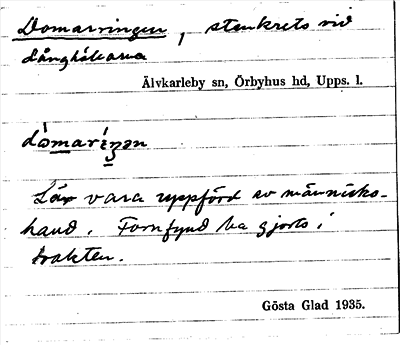 Domarringen, stenkrets vid
Långhökarna
Älvkarleby sn, Örbyhus hd, Upps. l.
dómaríŋən
Lär vara uppförd av människo-
hand. Fornfynd ha gjorts i
trakten.
Gösta Glad 1935.